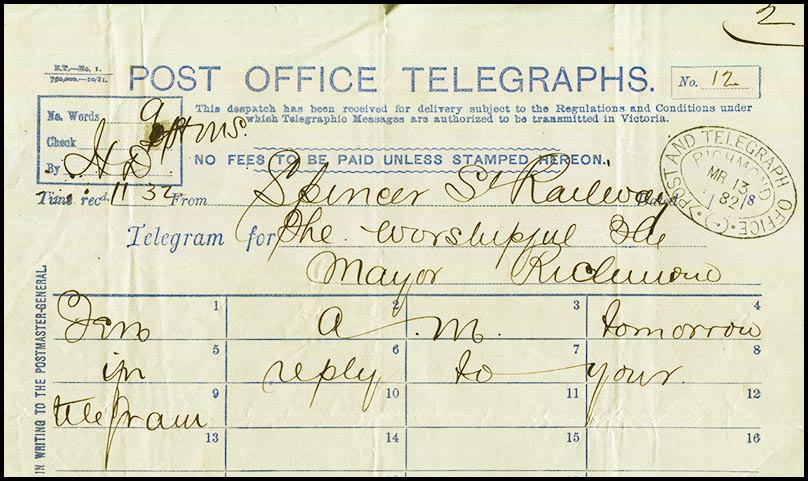 2
E.T.—No. 1.
POST OFFICE TELEGRAPHS.
No. 12
This despatch has been received for delivery subject to the Regulations and Conditions under
which Telegraphic Messages are authorized to be transmitted in Victoria.
No. Words 9
Check
By
NO FEES TO BE PAID UNLESS STAMPED HEREON.
POST AND TELEGRAPH OFFICE
RICHMOND
MR 13
82
Time recd. 11 32 From Spencer St Railway Dated
Telegram for The Worshipful The
Mayor Richmond
1 2 3 4
Ten a m. tomorrow
5 6 7 8
in reply to your
9 10 11 12
telegram
13 14 15 16
IN WRITING TO THE POSTMASTER-GENERAL.